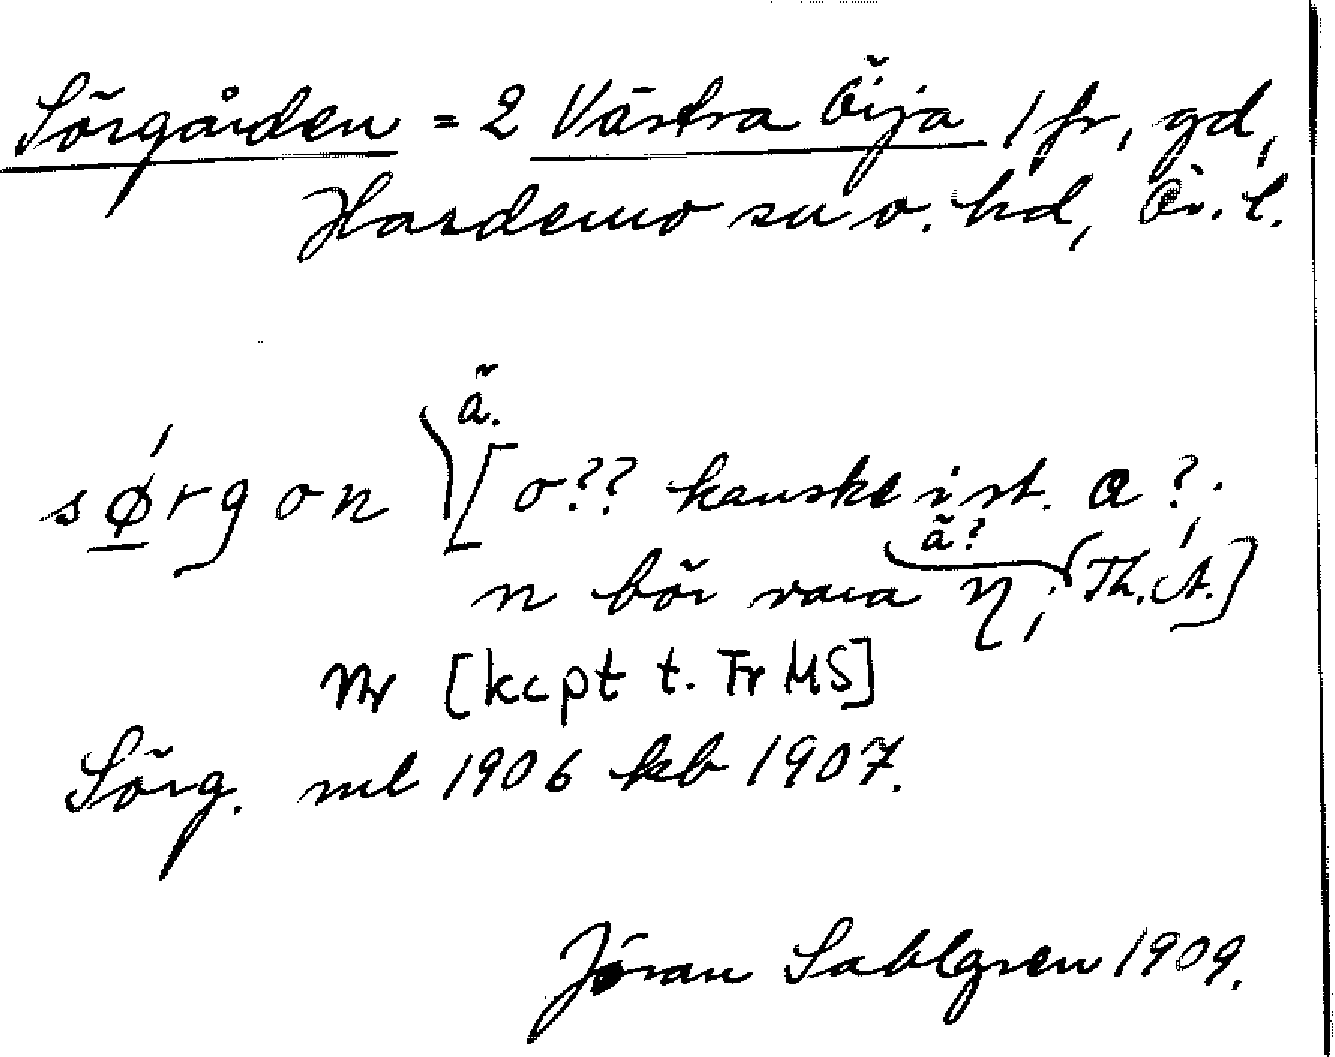 Sörgården = 2 Västra Öija 1 fr, gd,
Hardemo sn o. hd, Ör. l.
ä.
sørgon [o?? kanske i st. a?.
ä?
n bör vara η; (Th. A.]
Nr [kcpt t. Fr MS]
Sörg. ml 1906 kb 1907.
Jöran Sahlgren 1909.